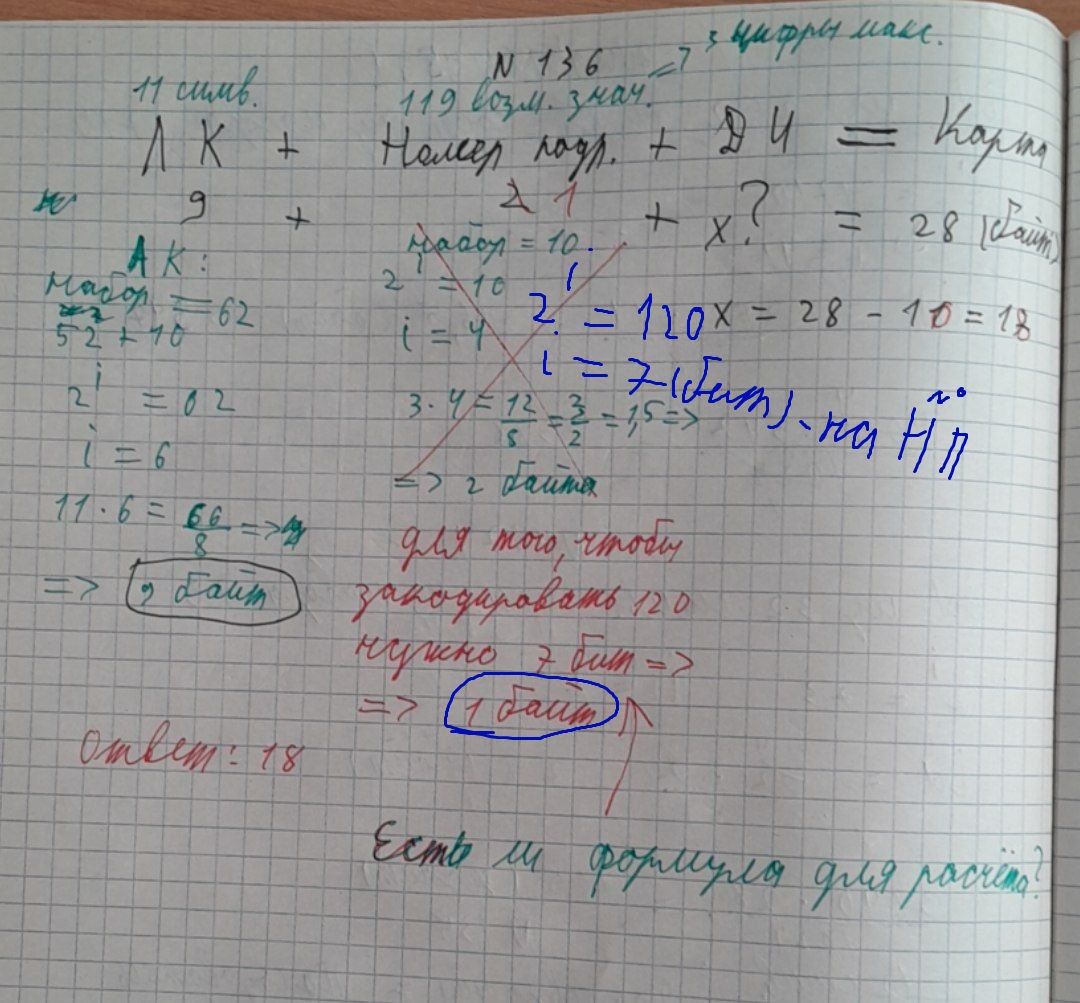 N 136
=> 3 цифры макс.
11 симв.
119 возм. знач.
ЛК + Номер подр. + ДИ = Карта
9 + 1 + x? = 28 (байт)
ЛК:
набор = 62
52 + 10
2^i = 62
i = 6
11 · 6 = 66/8 =>
=> 9 байт
набор = 10.
2^i = 10
i = 4
3 · 4 = 12/8 = 3/2 = 1,5 =>
=> 2 байта
2^i = 120
i = 7 (бит) - на НП
x = 28 - 10 = 18
для того, чтобы
закодировать 120
нужно 7 бит =>
=> 1 байт
Ответ: 18
Есть ли формула для расчёта?